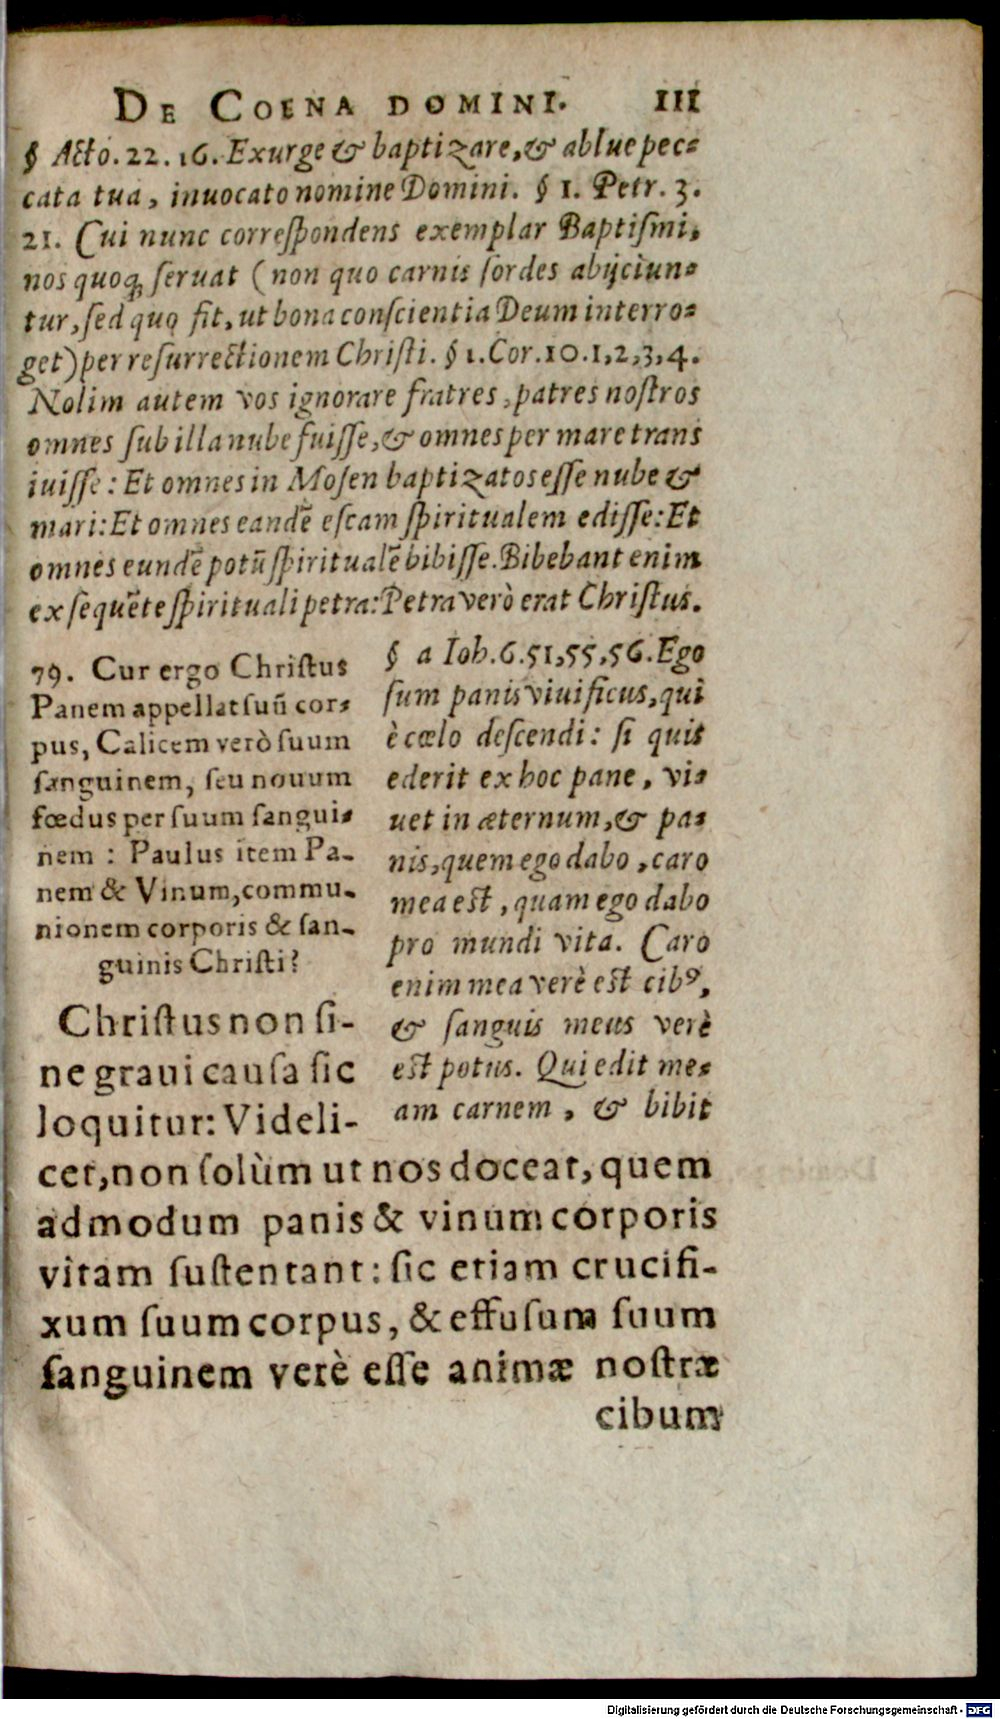 DE COENA DOMINI. 111
§ Acto. 22. 16. Exurge & baptizare, & ablue pec-
cata tua, inuocato nomine Domini. § 1. Petr. 3.
21. Cui nunc correſpondens exemplar Baptiſmi,
nos quoqꝫ ſeruat (non quo carnis ſordes abijciun-
tur, ſed quo fit, ut bona conſcientia Deum interro-
get) per reſurrectionem Chriſti. § 1. Cor. 10. 1, 2, 3, 4.
Nolim autem vos ignorare fratres, patres noſtros
omnes ſub illa nube fuiſſe, & omnes per mare trans
iuiſſe: Et omnes in Moſen baptizatos eſſe nube &
mari: Et omnes eandē eſcam ſpiritualem ediſſe: Et
omnes eundē potū ſpiritualē bibiſſe. Bibebant enim
ex ſequēte ſpirituali petra: Petra verò erat Chriſtus.
79. Cur ergo Chriſtus
Panem appellat ſuū cor-
pus, Calicem verò ſuum
ſanguinem, ſeu nouum
fœdus per ſuum ſangui-
nem : Paulus item Pa-
nem & Vinum, commu-
nionem corporis & ſan-
guinis Chriſti?
§ a Ioh. 6. 51, 55, 56. Ego
ſum panis viuificus, qui
è cœlo deſcendi: ſi quis
ederit ex hoc pane, vi-
uet in æternum, & pa-
nis, quem ego dabo, caro
mea eſt, quam ego dabo
pro mundi vita. Caro
enim mea verè eſt cibꝰ,
& ſanguis meus verè
eſt potus. Qui edit me-
am carnem, & bibit
Chriſtus non ſi-
ne graui cauſa ſic
loquitur: Videli-
cet, non ſolùm ut nos doceat, quem
admodum panis & vinum corporis
vitam ſuſtentant: ſic etiam crucifi-
xum ſuum corpus, & effuſum ſuum
ſanguinem verè eſſe animæ noſtræ
cibum
Digitalisierung gefördert durch die Deutsche Forschungsgemeinschaft - DFG